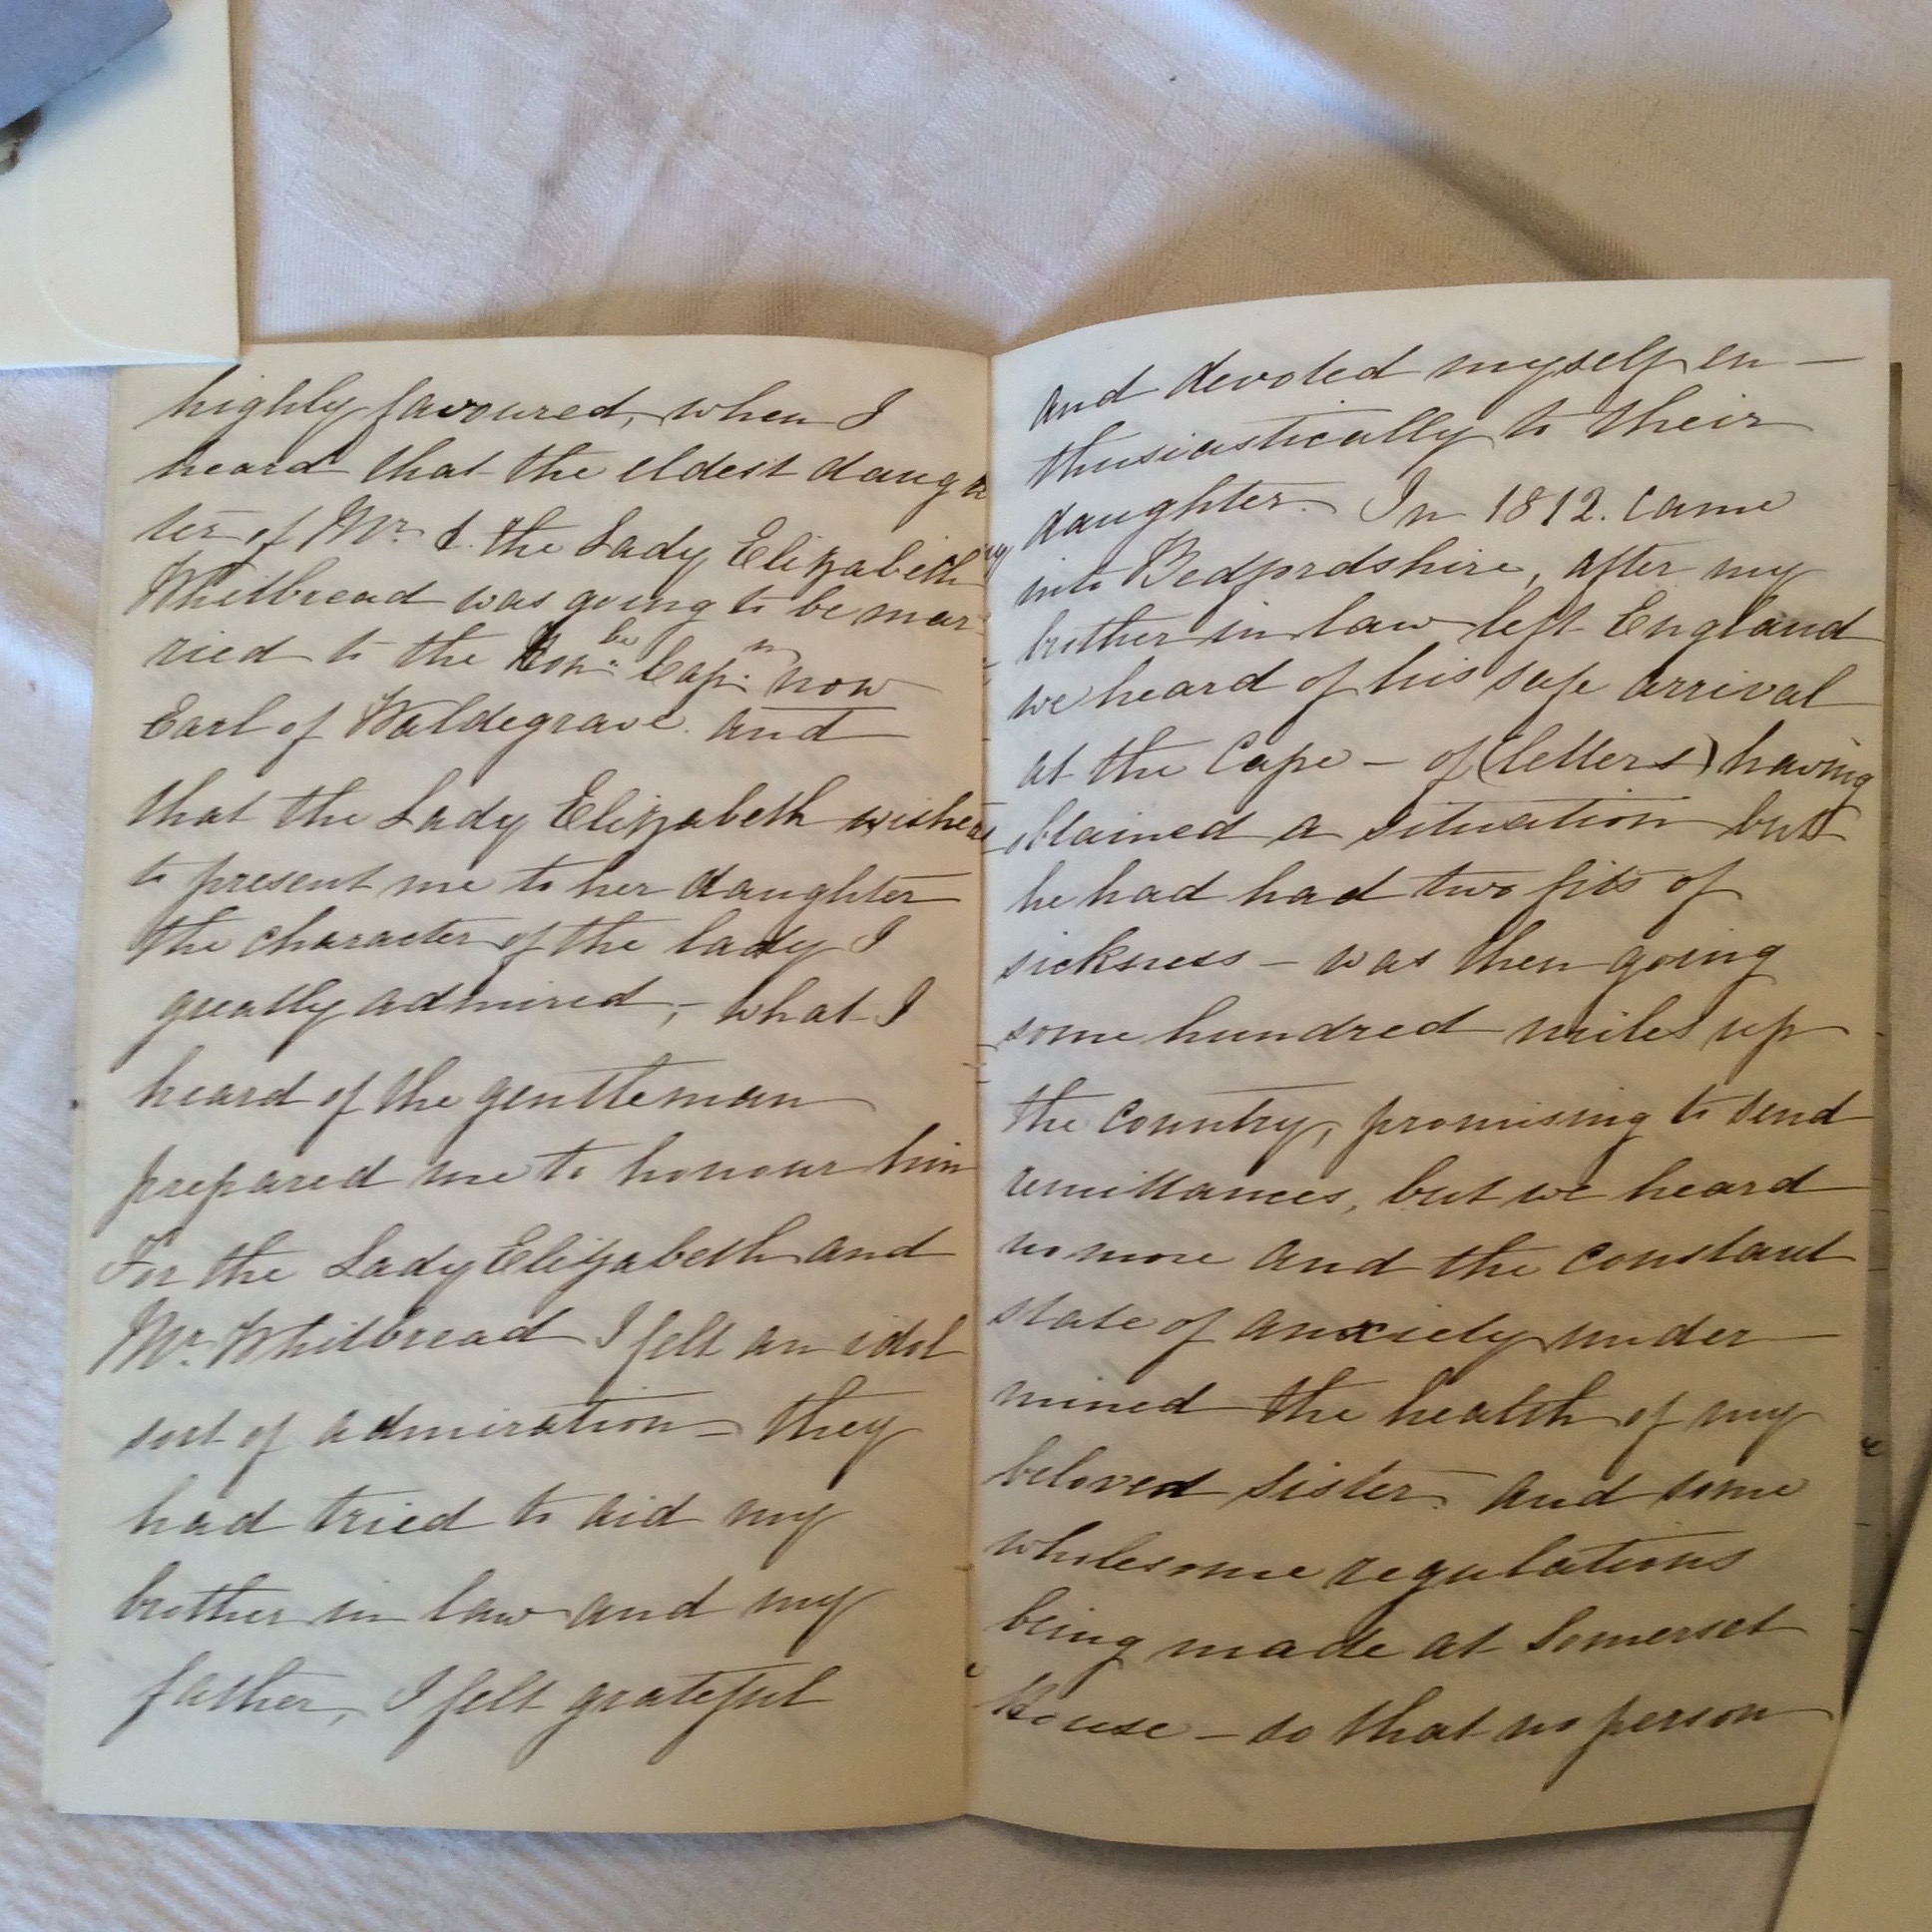 highly favoured, when I
heard that the eldest daugh
ter of Mr. & the Lady Elizabeth
Whitbread was going to be mar-
ried to the Honble. Capn. now
Earl of Waldegrave. and
that the Lady Elizabeth wishes
to present me to her daughter
the character of the lady I
greatly admired, - what I
heard of the gentleman
prepared me to honour him
For the Lady Elizabeth and
Mr. Whitbread I felt an idol
sort of admiration - they
had tried to aid my
brother in law and my
father, I felt grateful
and devoted myself en -
thusiastically to their
daughter. In 1812. came
into Bedfordshire, after my
brother in law left England
we heard of his safe arrival
at the Cape - of (letters) having
obtained a situation but
he had had two fits of
sickness - was then going
some hundred miles up
the country, promising to send
remittances, but we heard
no more and the constant
state of anxiety under -
mined the health of my
beloved sister. and some
wholesome regulations
being made at Somerset
House - so that no person